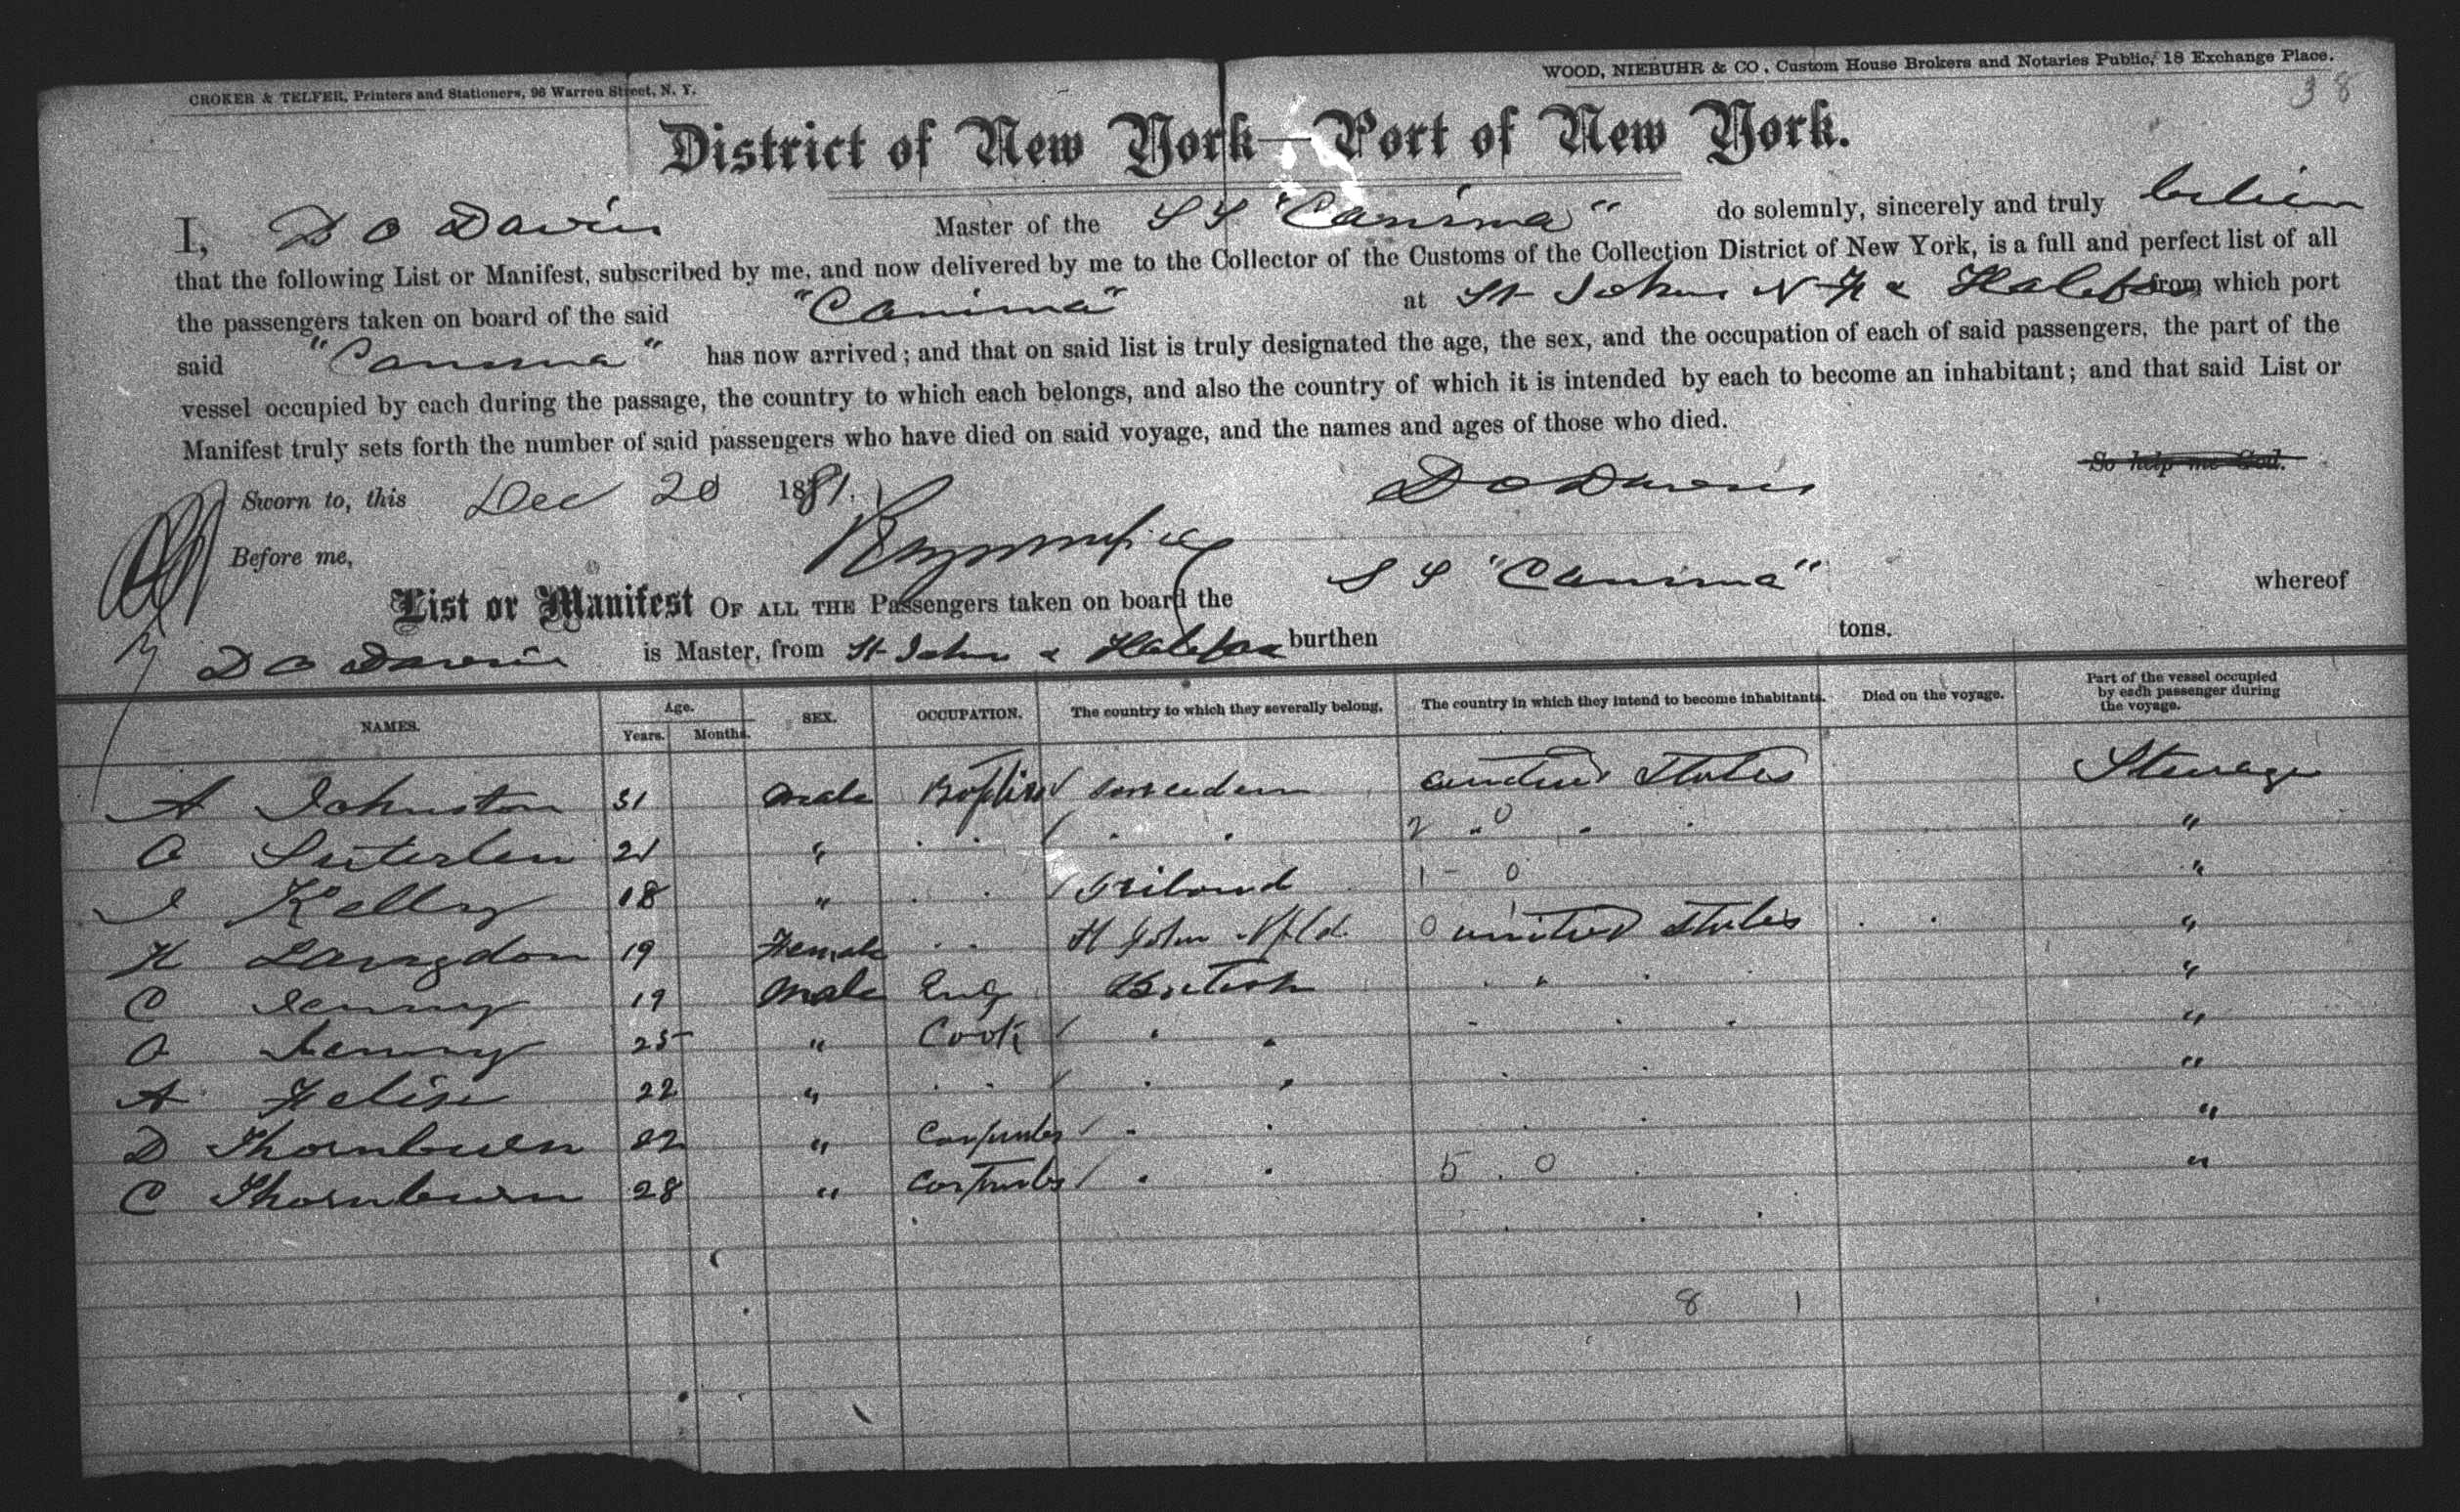 CROKER & TELFER, Printers and Stationers, 96 Warren Street, N. Y.
WOOD, NIEBUHR & CO, Custom House Brokers and Notaries Public, 18 Exchange Place.
38
District of New York—Port of New York.
I, D O Davies Master of the S S "Canima" do solemnly, sincerely and truly
that the following List or Manifest, subscribed by me, and now delivered by me to the Collector of the Customs of the Collection District of New York, is a full and perfect list of all
the passengers taken on board of the said "Canima" at St Johns N F & Halifax from which port
said "Canima" has now arrived; and that on said list is truly designated the age, the sex, and the occupation of each of said passengers, the part of the
vessel occupied by each during the passage, the country to which each belongs, and also the country of which it is intended by each to become an inhabitant; and that said List or
Manifest truly sets forth the number of said passengers who have died on said voyage, and the names and ages of those who died.
So help me God.
Sworn to, this Dec 20 1881. D O Davies
Before me,
List or Manifest OF ALL THE Passengers taken on board the S S "Canima" whereof
D O Davies is Master, from St John & Halifax burthen tons.
NAMES. Age. Years. Months. SEX. OCCUPATION. The country to which they severally belong. The country in which they intend to become inhabitants. Died on the voyage. Part of the vessel occupied by each passenger during the voyage.
A Johnston 31 male United States Steerage
O 21 " 2 0 "
J Kelly 18 " Ireland 1 - 0 "
H Langdon 19 Female St John Nfld. 0 1 United States "
C 19 male Eng British "
O 25 " Cook "
A 22 " "
D Thornburn 22 " Carpenter "
C Thornburn 28 " Carpenter 5 0 "
8 1